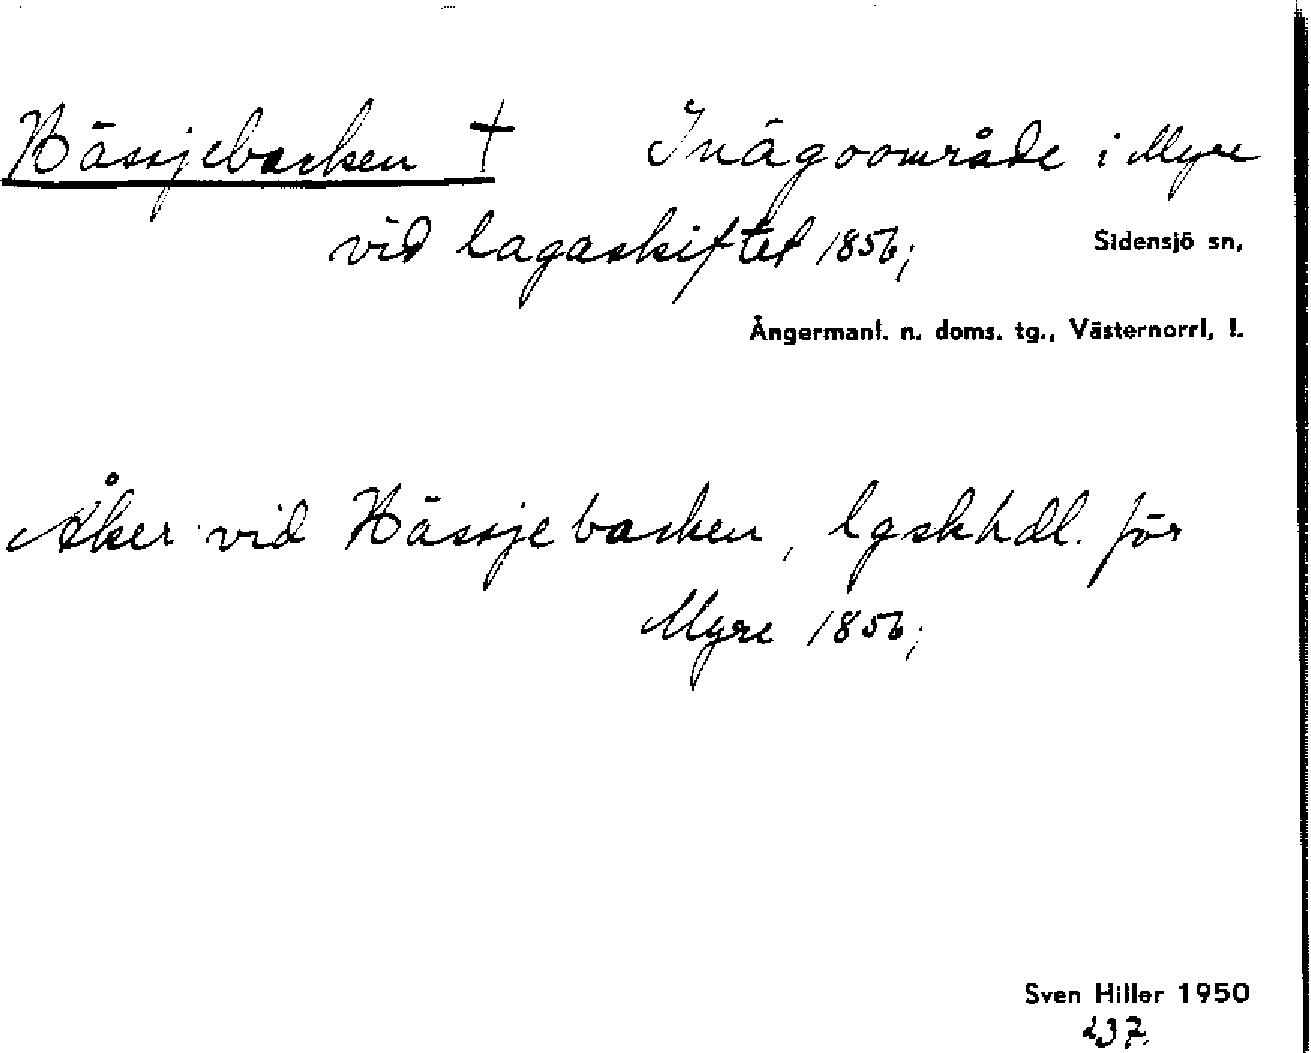 Hässjebacken † Inägoområde i Myre
vid lagaskiftet 1856;
Sidensjö sn,
Ångermanl. n. doms. tg., Västernorrl, l.
Åker vid Hässjebacken, lgskhdl. för
Myre 1856;
Sven Hiller 1950
237.